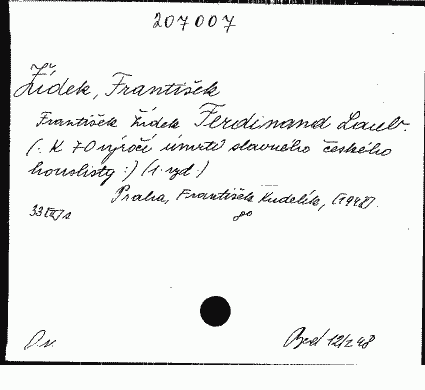 207007
Žídek, František
František Žídek Ferdinand Laub.
(: K 70 výročí úmrtí slavného českého
houslisty :) (1. vyd.)
Praha, František Kudelík, (1948).
33